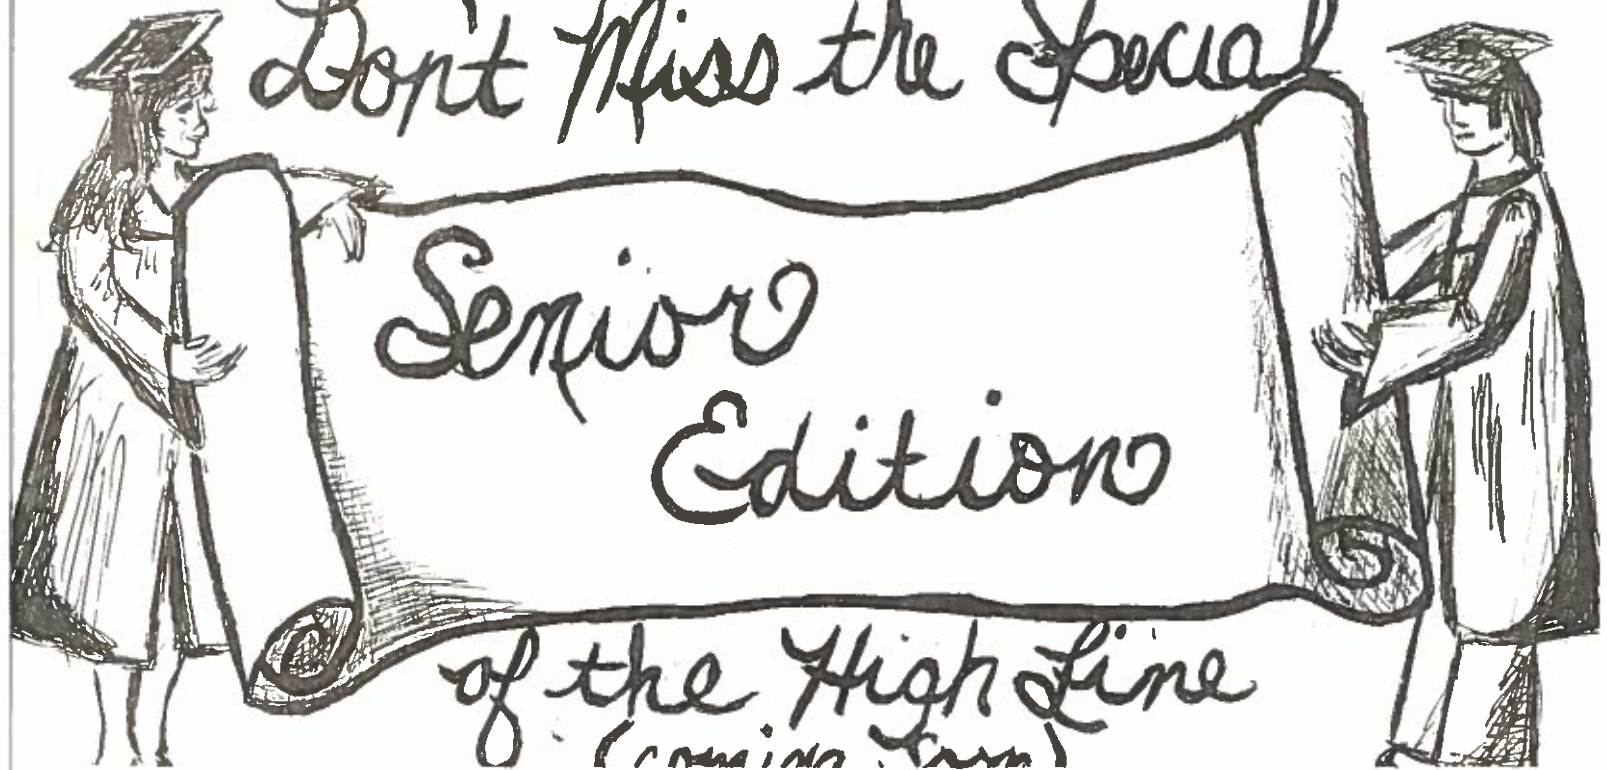 Don't Miss the Special
Senior
Edition
of the High Line
(coming soon)